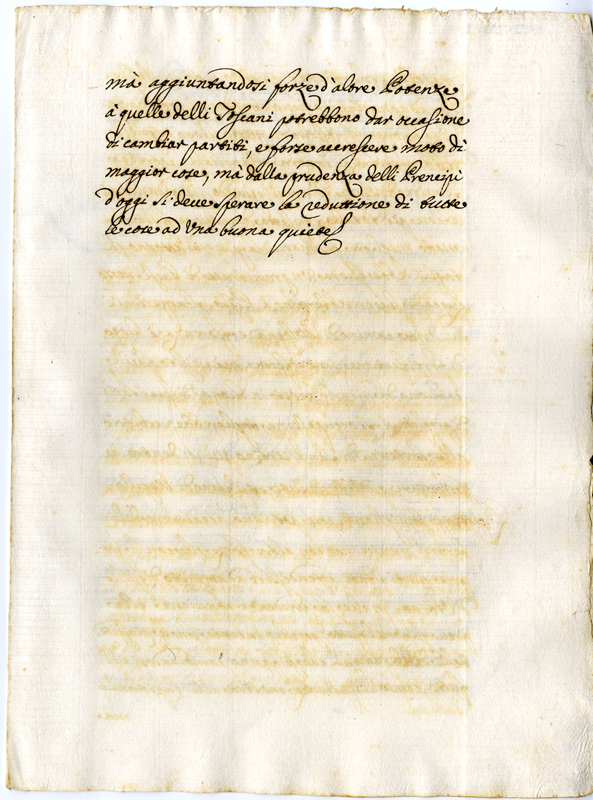 mà aggiuntandosi forze d'altre Potenze
à quelle delli Toscani potrebbono dar occasione
di cambiar partiti, e forze accrescere moto di
maggior cose, mà dalla prudenza delli Prencipi
d'oggi si deve sperare la reduttione di tutte
le cose ad Una buona quiete